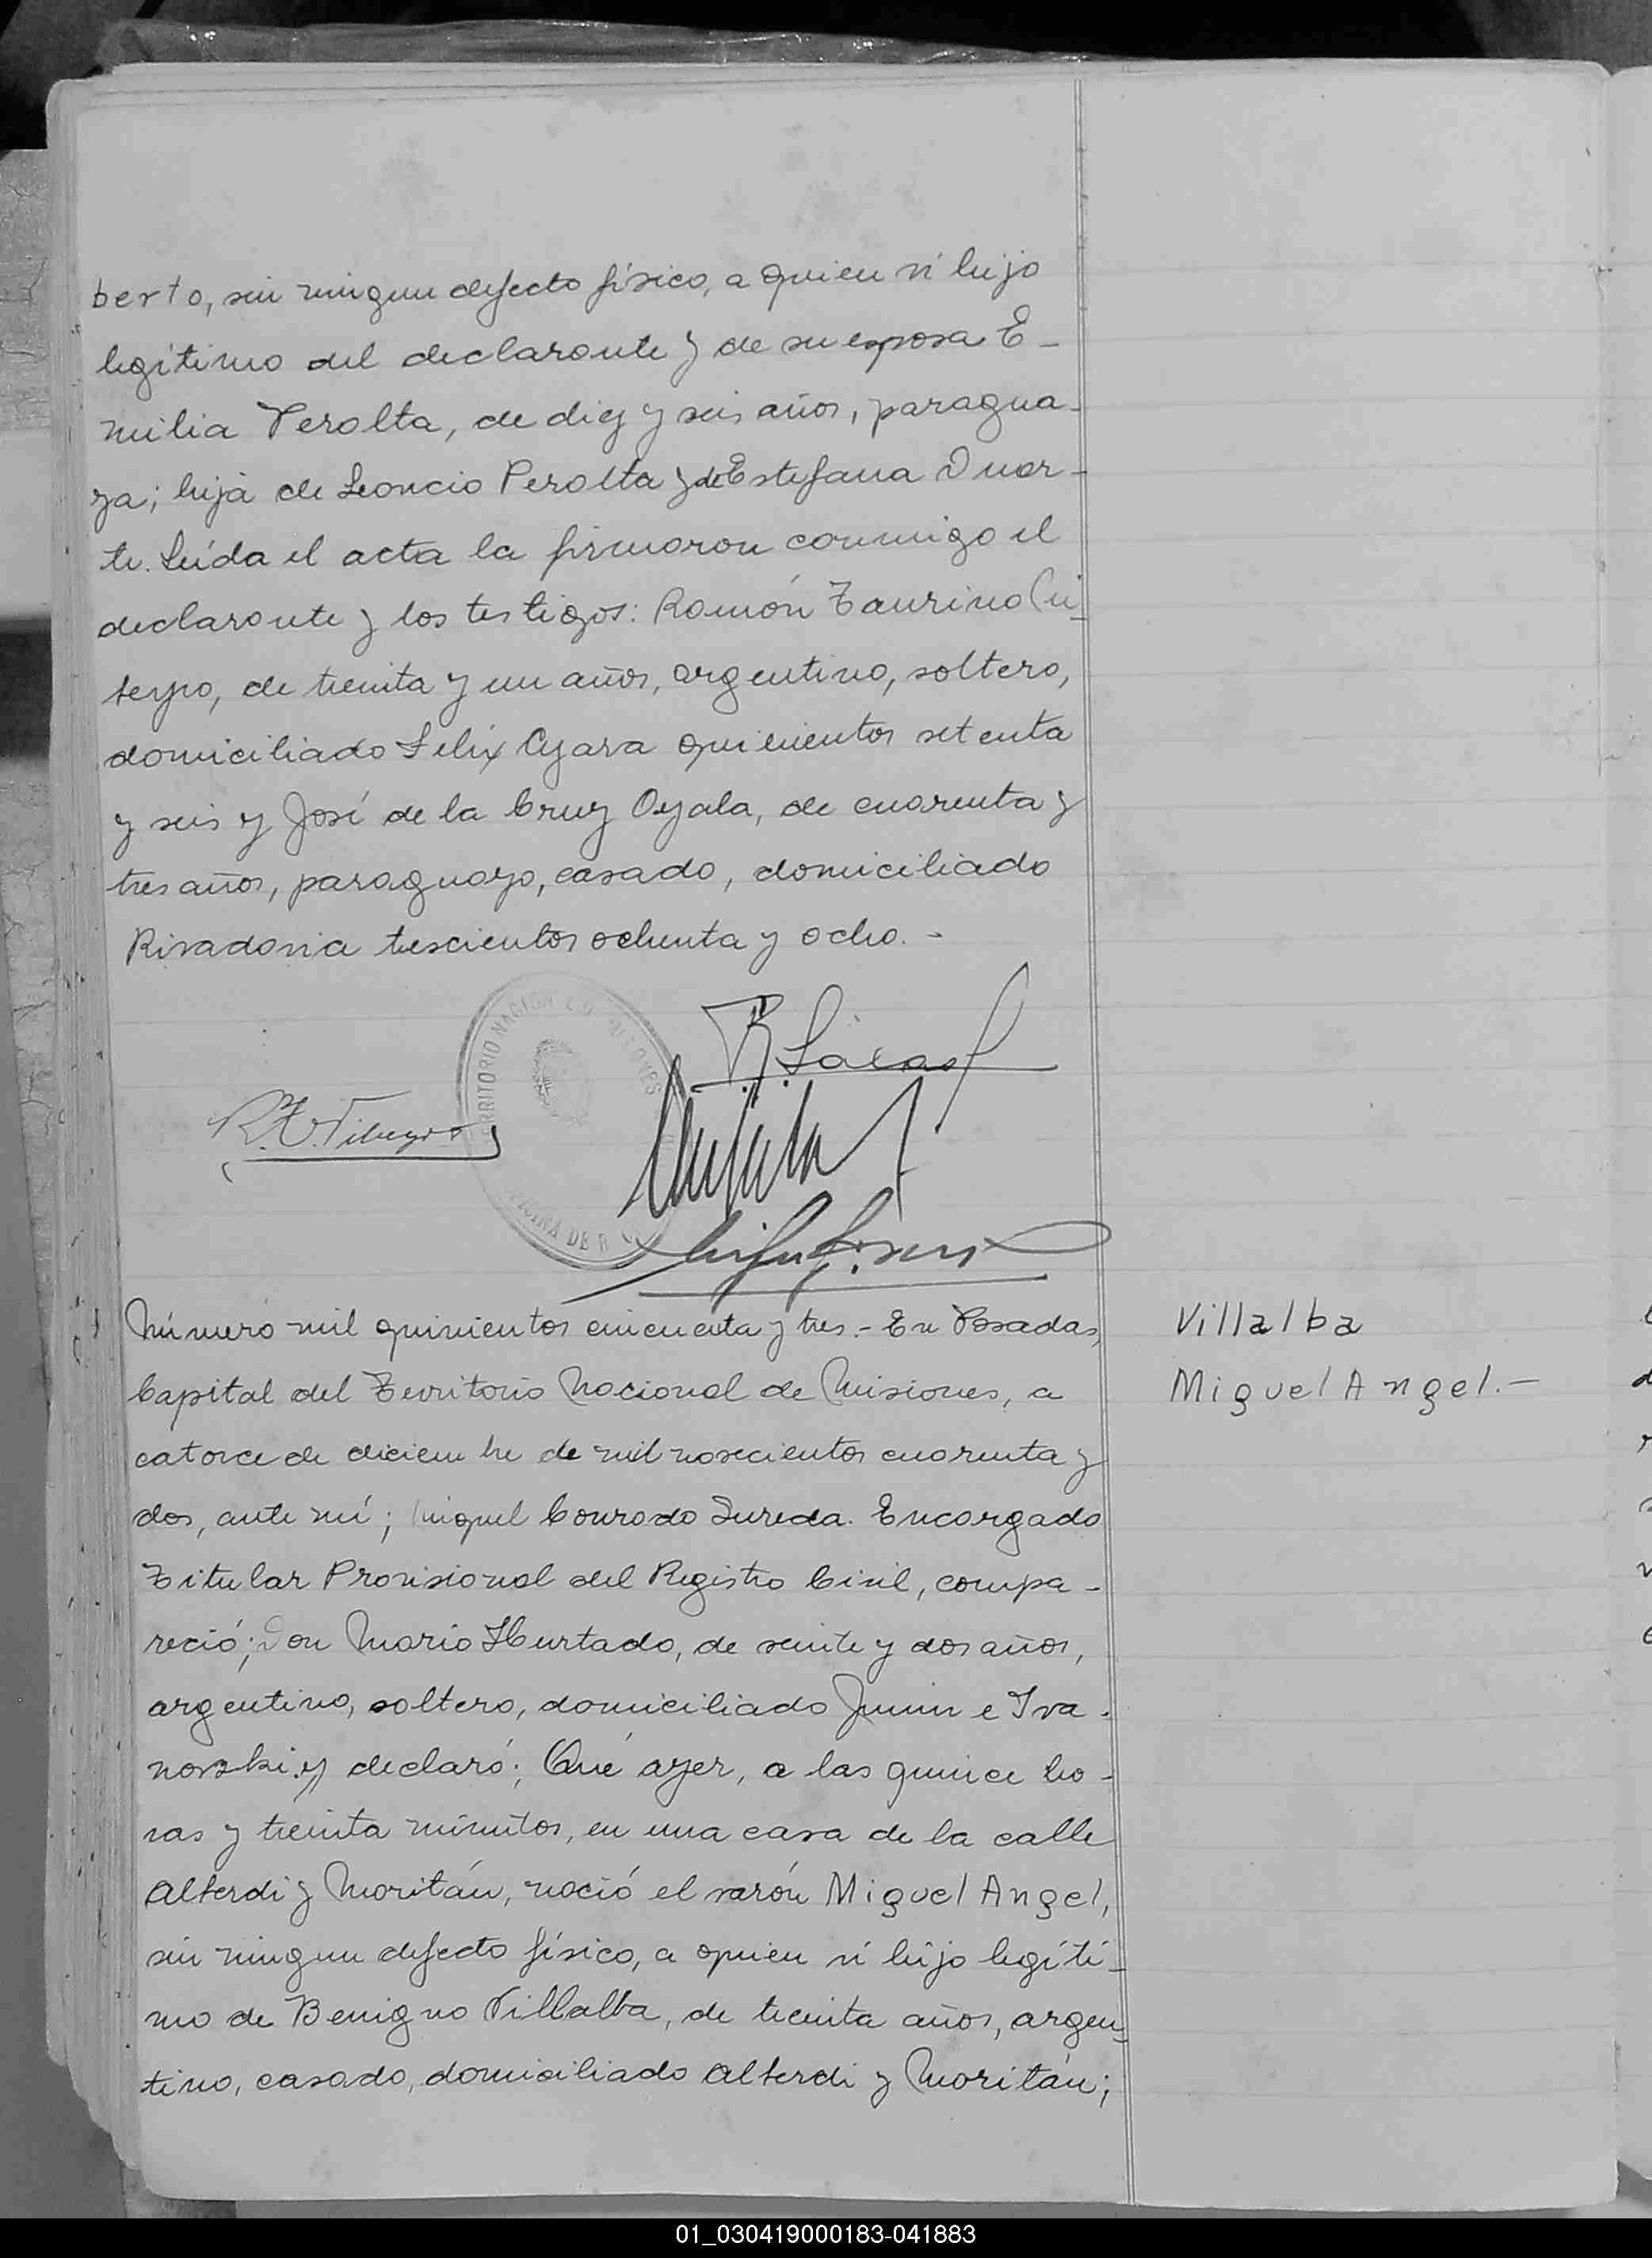 berto, sin ningun defecto físico, a quien vi hijo
legítimo del declarante y de su esposa E-
milia Peralta, de diez y seis años, paragua-
ya; hija de Leoncio Peralta y de Estefana Duar-
te. Leída el acta la firmaron conmigo el
declarante y los testigos: Ramón Taurino
de treinta y un años, argentino, soltero,
domiciliado Felix Azara quinientos setenta
y seis y José de la Cruz Ayala, de cuarenta y
tres años, paraguayo, casado, domiciliado
Rivadavia trescientos ochenta y ocho. -
TERRITORIO NACIONAL DE MISIONES
OFICINA DE
Número mil quinientos cincuenta y tres.- En Posadas,
Capital del Territorio Nacional de Misiones, a
catorce de diciembre de mil novecientos cuarenta y
dos, ante mí; Miguel Conrado Sureda. Encargado
Titular Provisional del Registro Civil, compa-
reció; Don Mario Hurtado, de veinte y dos años,
argentino, soltero, domiciliado Junin e Iva-
novski y declaró; Qué ayer, a las quince ho-
ras y treinta minutos, en una casa de la calle
Alberdi y Moritán, nació el varón Miguel Angel,
sin ningun defecto físico, a quien vi hijo legíti-
mo de Benigno Villalba, de treinta años, argen-
tino, casado, domiciliado Alberdi y Moritán;
Villalba
Miguel Angel.-
01_030419000183-041883